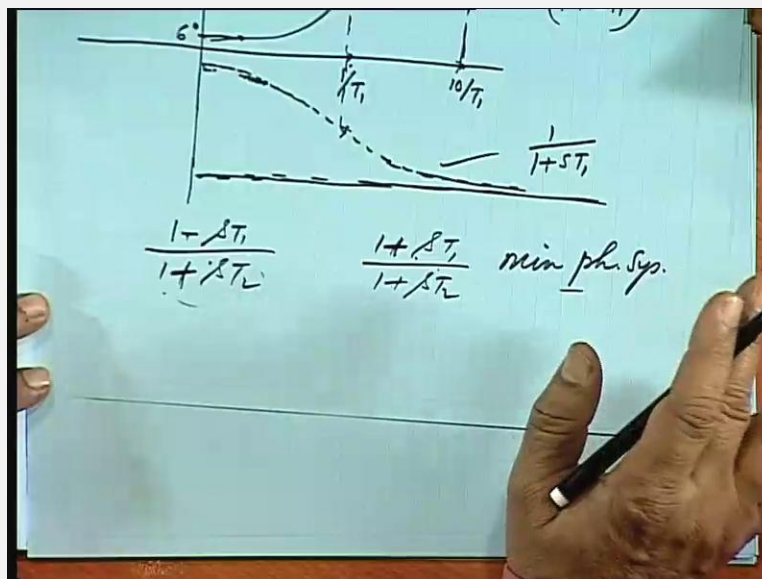 6°
1/T₁ 10/T₁
1/(1+ST₁)
(1-ST₁)/(1+ST₂) (1+ST₁)/(1+ST₂) min ph. sys.